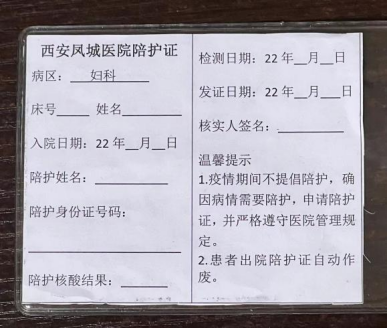 西安凤城医院陪护证
病区：妇科
床号____ 姓名________
入院日期：22年__月__日
陪护姓名：__________
陪护身份证号码：
____________________
陪护核酸结果：______
检测日期：22年__月__日
发证日期：22年__月___日
核实人签名：_________
温馨提示
1.疫情期间不提倡陪护，确
因病情需要陪护，申请陪护
证，并严格遵守医院管理规
定。
2.患者出院陪护证自动作
废。